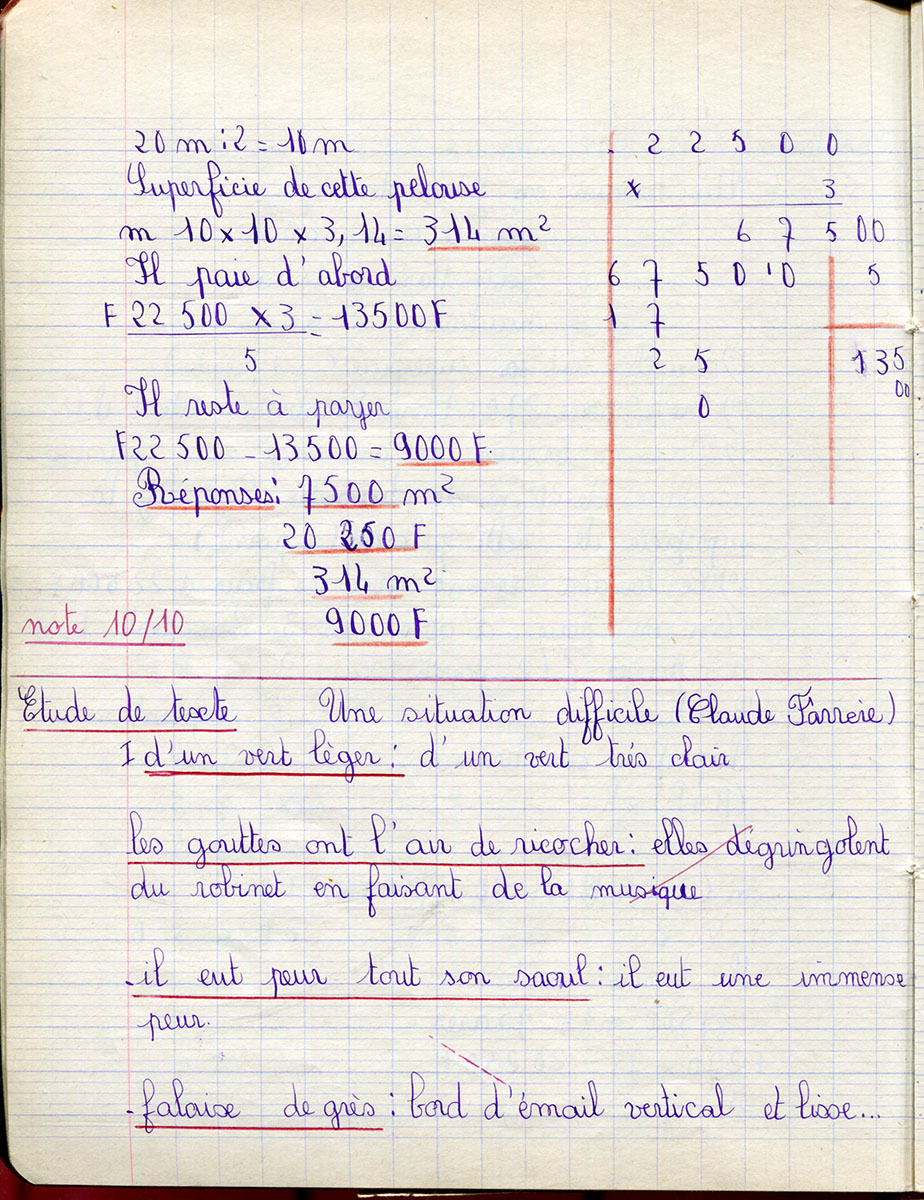 20 m : 2 = 10 m
Superficie de cette pelouse
m 10 x 10 x 3,14 = 314 m²
Il paie d'abord
F 22 500 x 3 = 13500 F
5
Il reste à payer
F 22 500 - 13 500 = 9000 F.
Réponses: 7500 m²
20 250 F
314 m²
9000 F
note 10/10
2 2 5 0 0
x 3
6 7 5 00
6 7 5 0 '0 5
1 7
2 5 135
00
0
Etude de texte Une situation difficile (Claude Farrère)
I d'un vert lèger : d'un vert trés clair
les gouttes ont l'air de ricocher : elles dégringolent
du robinet en faisant de la musique
-il eut peur tout son saoul : il eut une immense
peur.
-falaise de grès : bord d'émail vertical et lisse...